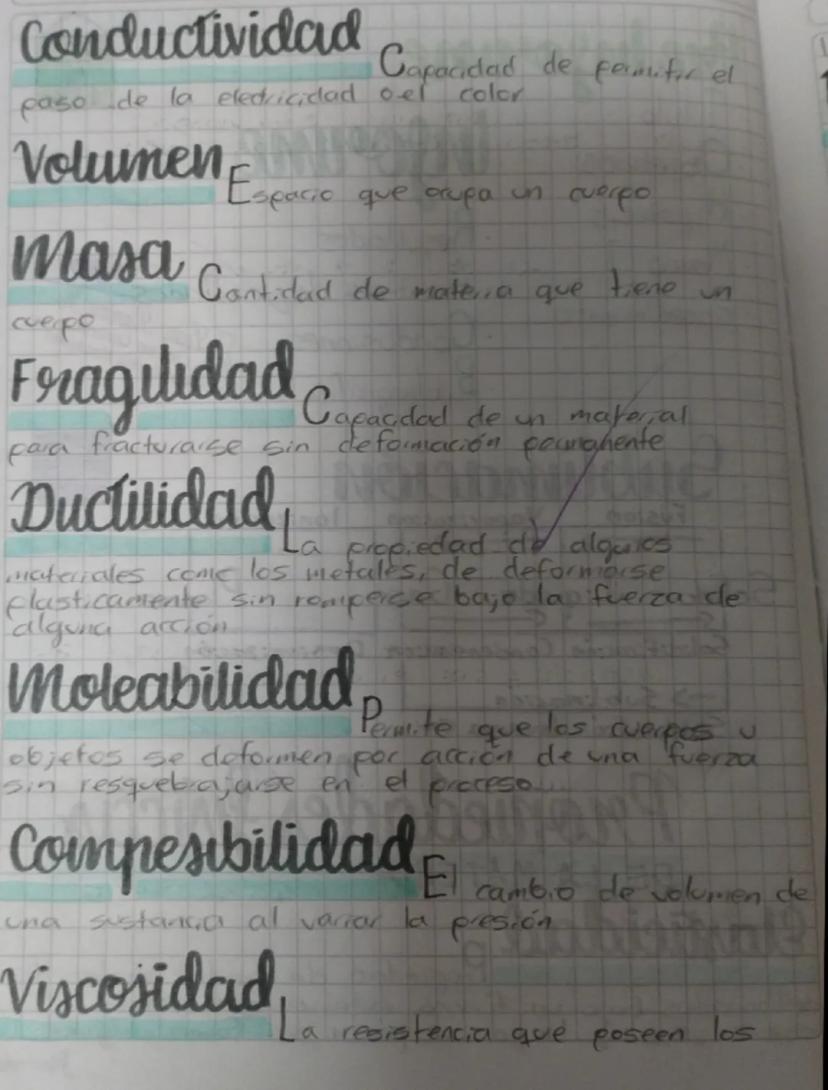 Conductividad Capacidad de permitir el
paso de la electricidad o el color
Volumen Espacio que ocupa un cuerpo
Masa Cantidad de materia que tiene un
cuerpo
Fragilidad Capacidad de un material
para fracturarse sin deformación
Ductilidad La propiedad de algunos
materiales como los metales, de deformarse
plasticamente sin romperse bajo la fuerza de
alguna acción
Moleabilidad Permite que los cuerpos u
objetos se deformen por acción de una fuerza
sin resquebrajarse en el proceso
Compesibilidad El cambio de volumen de
una sustancia al variar la presión
Viscosidad La resistencia que poseen los